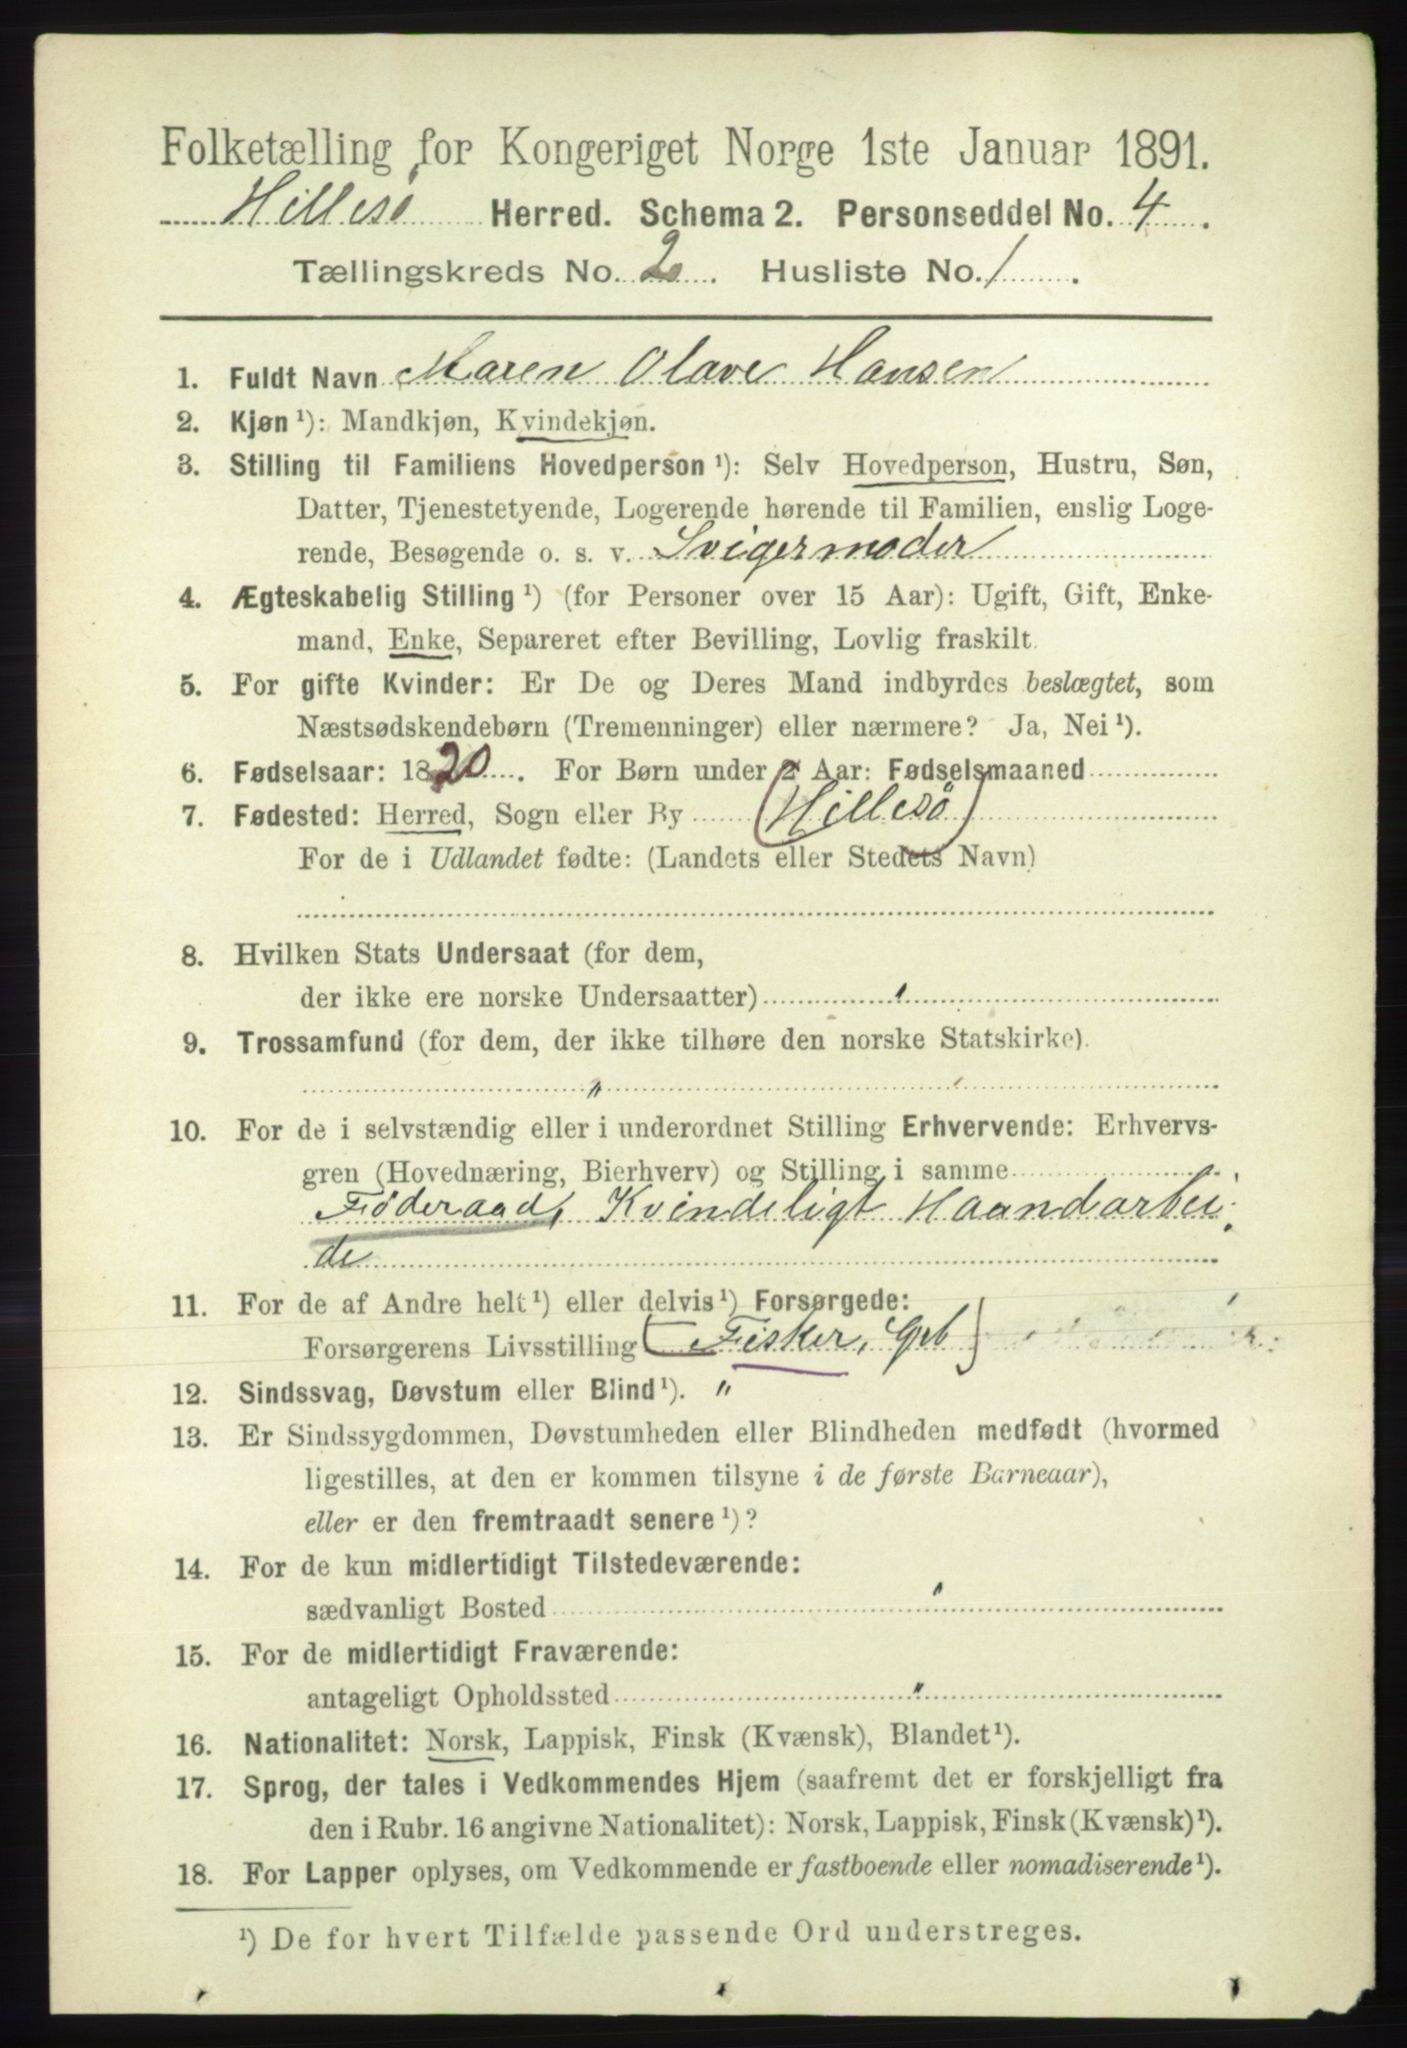 Folketælling for Kongeriget Norge 1ste Januar 1891.
Hillesö Herred. Schema 2. Personseddel No. 4.
Tællingskreds No. 2. Husliste No. 1.
1. Fuldt Navn Maren Olave Hansen
2. Kjøn ¹): Mandkjøn, Kvindekjøn.
3. Stilling til Familiens Hovedperson ¹): Selv Hovedperson, Hustru, Søn,
Datter, Tjenestetyende, Logerende hørende til Familien, enslig Loge-
rende, Besøgende o. s. v. Svigermoder
4. Ægteskabelig Stilling ¹) (for Personer over 15 Aar): Ugift, Gift, Enke-
mand, Enke, Separeret efter Bevilling, Lovlig fraskilt.
5. For gifte Kvinder: Er De og Deres Mand indbyrdes beslægtet, som
Næstsødskendebørn (Tremenninger) eller nærmere? Ja, Nei ¹).
6. Fødselsaar: 1820. For Børn under 2 Aar: Fødselsmaaned
7. Fødested: Herred, Sogn eller By (Hillesö)
For de i Udlandet fødte: (Landets eller Stedets Navn)
8. Hvilken Stats Undersaat (for dem,
der ikke ere norske Undersaatter)
9. Trossamfund (for dem, der ikke tilhøre den norske Statskirke).
"
10. For de i selvstændig eller i underordnet Stilling Erhvervende: Erhvervs-
gren (Hovednæring, Bierhverv) og Stilling i samme
Föderaad, Kvindeligt Haandarbei
de
11. For de af Andre helt ¹) eller delvis ¹) Forsørgede:
Forsørgerens Livsstilling [Fisker, Grb)
12. Sindssvag, Døvstum eller Blind ¹). "
13. Er Sindssygdommen, Døvstumheden eller Blindheden medfødt (hvormed
ligestilles, at den er kommen tilsyne i de første Barneaar),
eller er den fremtraadt senere ¹)?
14. For de kun midlertidigt Tilstedeværende:
sædvanligt Bosted "
15. For de midlertidigt Fraværende:
antageligt Opholdssted "
16. Nationalitet: Norsk, Lappisk, Finsk (Kvænsk), Blandet ¹).
17. Sprog, der tales i Vedkommendes Hjem (saafremt det er forskjelligt fra
den i Rubr. 16 angivne Nationalitet): Norsk, Lappisk, Finsk (Kvænsk) ¹).
18. For Lapper oplyses, om Vedkommende er fastboende eller nomadiserende ¹).
¹) De for hvert Tilfælde passende Ord understreges.